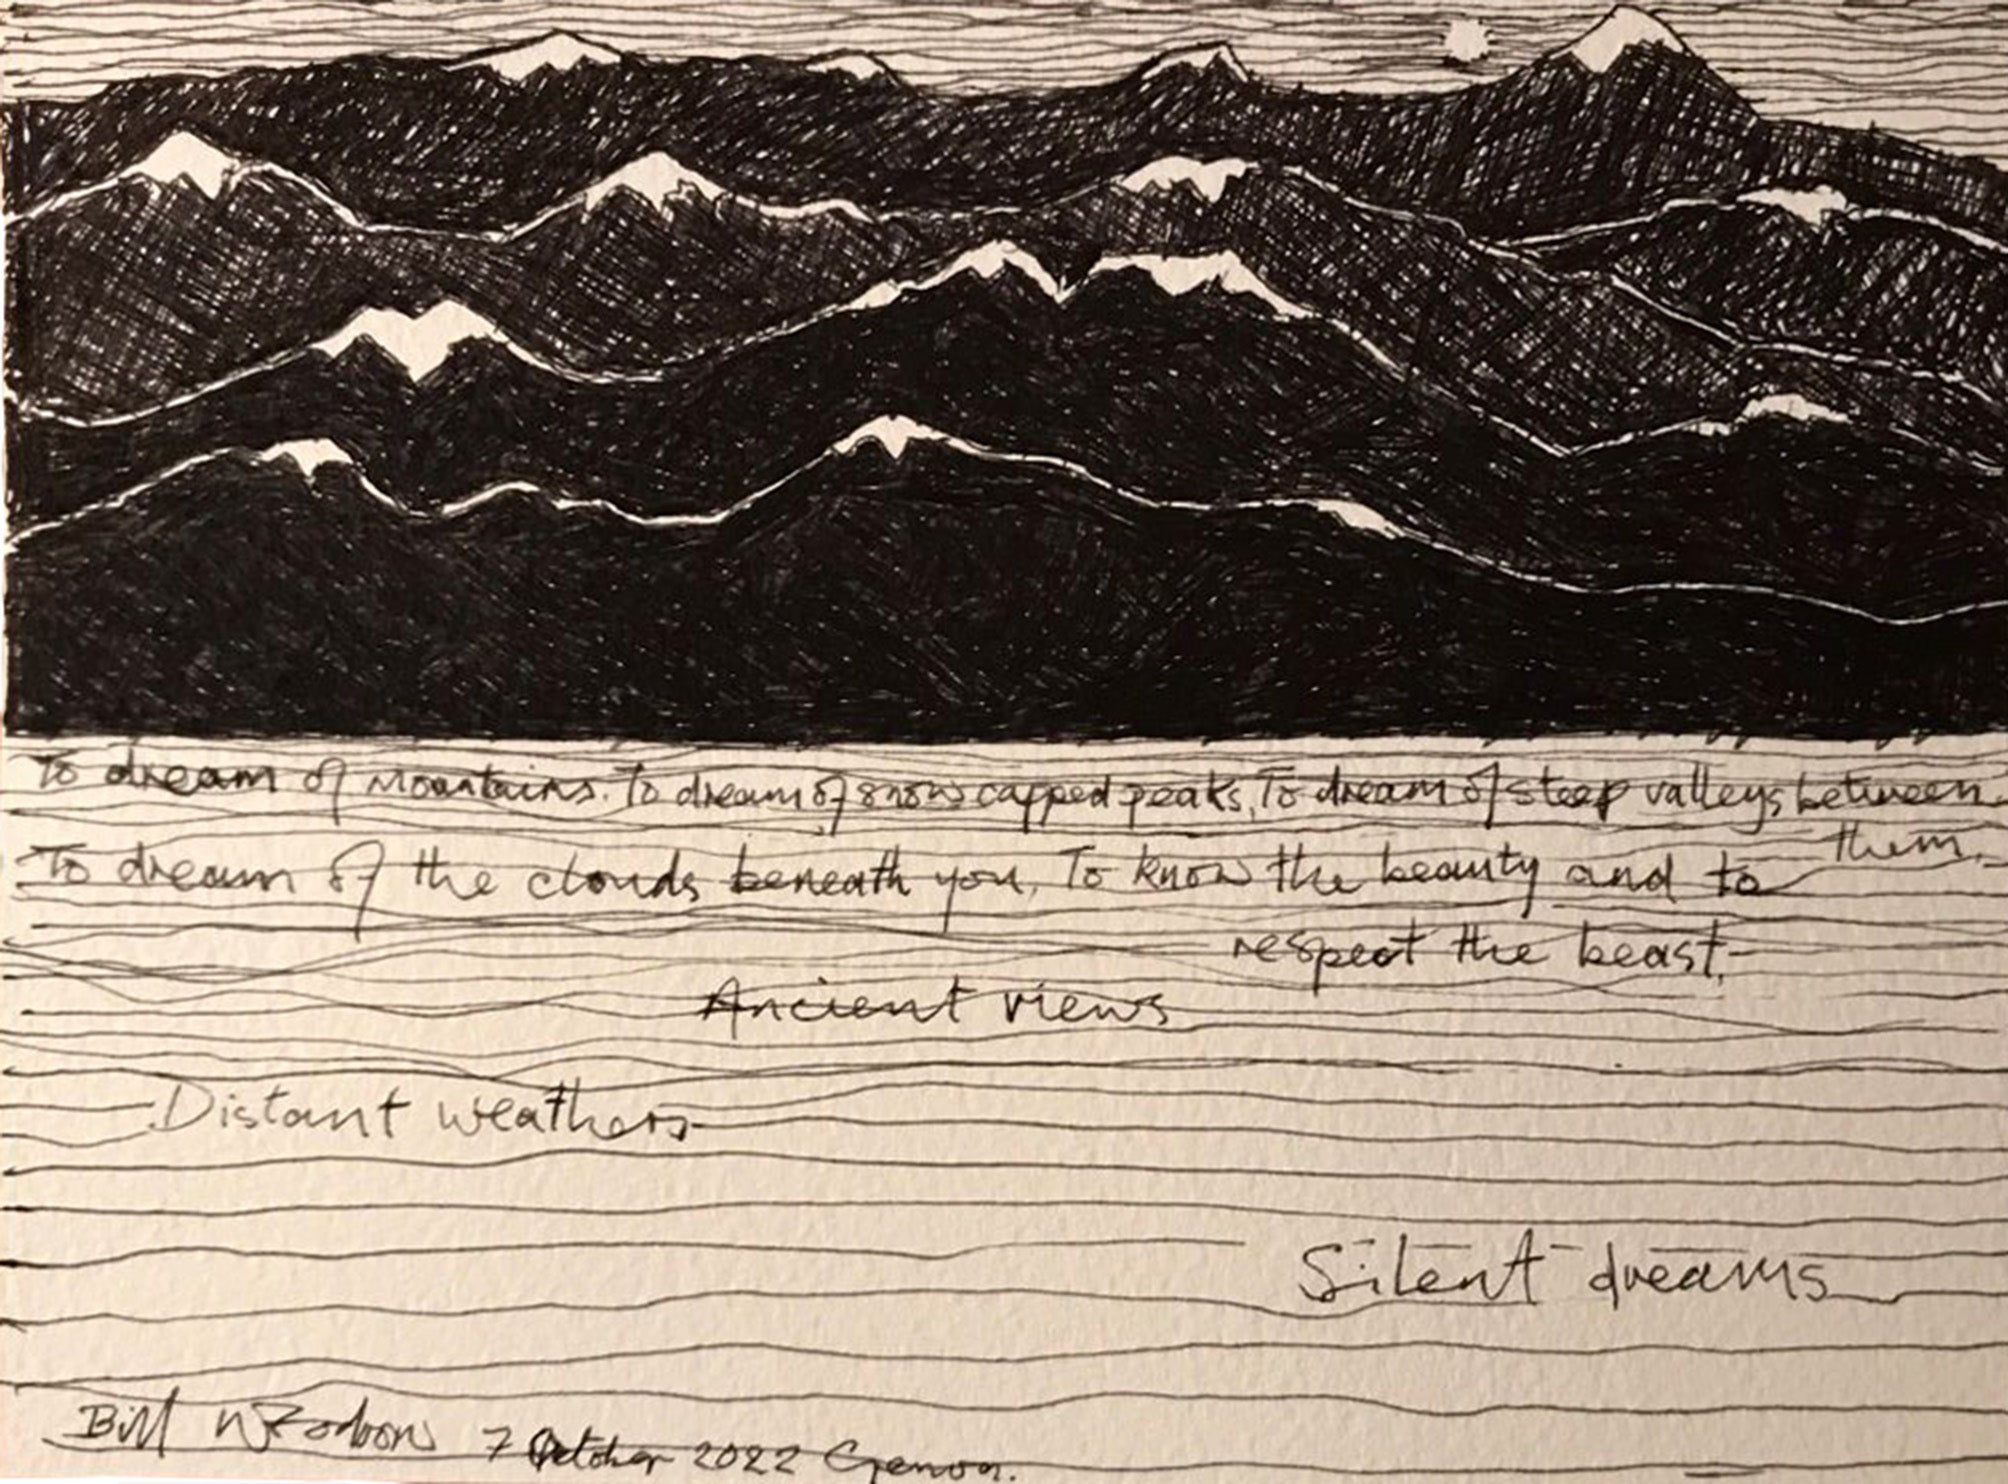 To dream of mountains. To dream of snow capped peaks. To dream of steep valleys between
them.
To dream of the clouds beneath you. To know the beauty and to
respect the beast.
Ancient views
Distant weathers
Silent dreams
Bill 7 October 2022 Genoa.